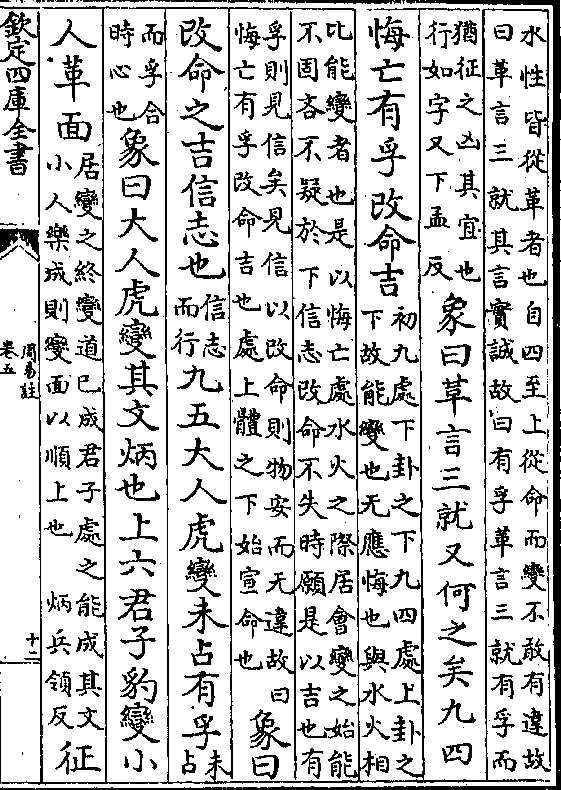 水性皆從革者也自四至上從命而變不敢有違故
曰革言三就其言實誠故曰有孚革言三就有孚而
猶征之凶其宜也
行如字又下孟反
象曰革言三就又何之矣九四
悔亡有孚改命吉
初九處下卦之下九四處上卦之
下故能變也无應悔也與水火相
比能變者也是以悔亡處水火之際居會變之始能
不固吝不疑於下信志改命不失時願是以吉也有
孚則見信矣見信以改命則物安而无違故曰
悔亡有孚改命吉也處上體之下始宣命也
象曰
改命之吉信志也
信志
而行
九五大人虎變未占有孚
未
占
而孚合
時心也
象曰大人虎變其文炳也上六君子豹變小
人革面
居變之終變道已成君子處之能成其文
小人樂成則變面以順上也 炳兵領反
征
欽定四庫全書
周易註
卷五
十二